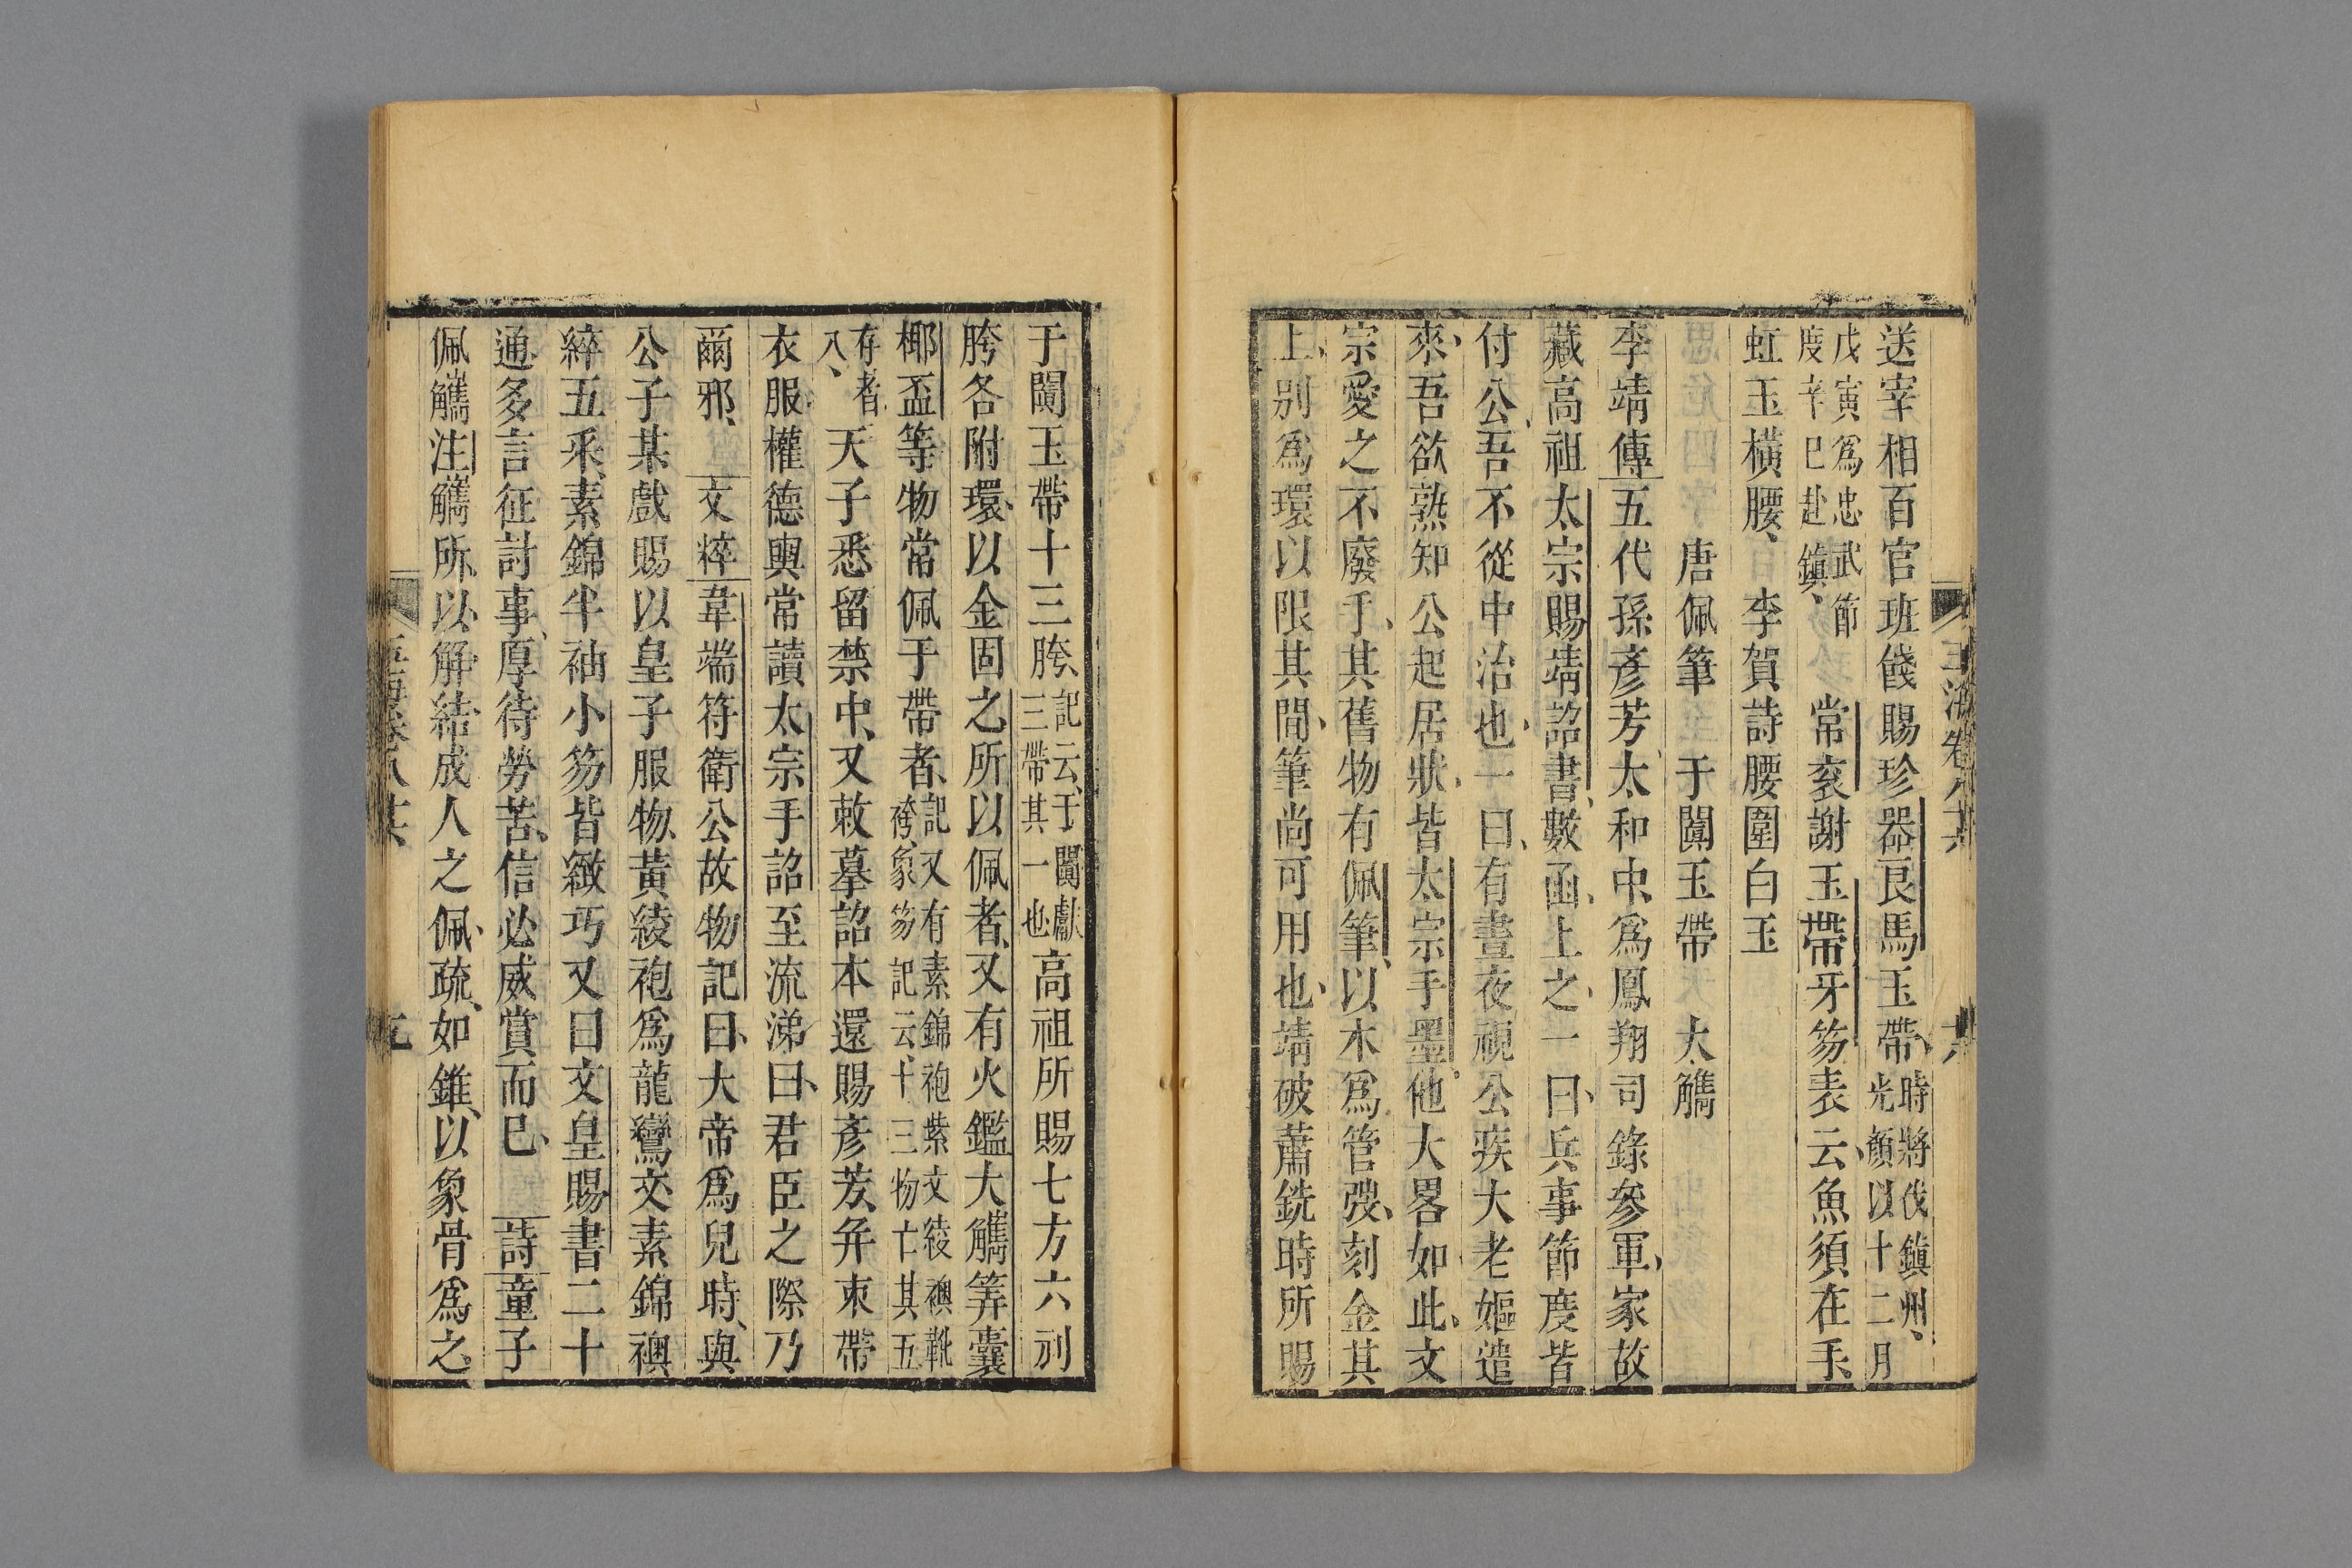 玉海卷八十六
送宰相百官班餞賜珍器良馬玉帶時將伐鎮州光顏以十二月
戊寅爲忠武節度辛巳赴鎮常衮謝玉帶牙笏表云魚須在手
虹玉橫腰李賀詩腰圍白玉
唐佩筆 于闐玉帶 大觿
李靖傳五代孫彥芳太和中爲鳳翔司錄參軍家故
藏高祖太宗賜靖詔書數函上之一曰兵事節度皆
付公吾不從中治也一曰有晝夜視公疾大老嫗遣
來吾欲熟知公起居狀皆太宗手墨他大畧如此文
宗愛之不廢手其舊物有佩筆以木爲管弢刻金其
上別爲環以限其間筆尚可用也靖破蕭銑時所賜
于闐玉帶十三胯記云于闐獻三帶其一也高祖所賜七方六刓
胯各附環以金固之所以佩者又有火鑑大觿筭囊
椰盃等物常佩于帶者記又有素錦袍紫文綾襖靴袴象笏記云十三物亡其五
存者八天子悉留禁中又敕摹詔本還賜彥芳并束帶
衣服權德輿常讀太宗手詔至流涕曰君臣之際乃
爾邪文粹韋端符衛公故物記曰大帝爲兒時與
公子某戲賜以皇子服物黃綾袍爲龍鸞文素錦襖
綷五釆素錦半袖小笏皆緻巧又曰文皇賜書二十
通多言征討事厚待勞苦信必威賞而已詩童子
佩觿注觿所以解結成人之佩疏如錐以象骨爲之